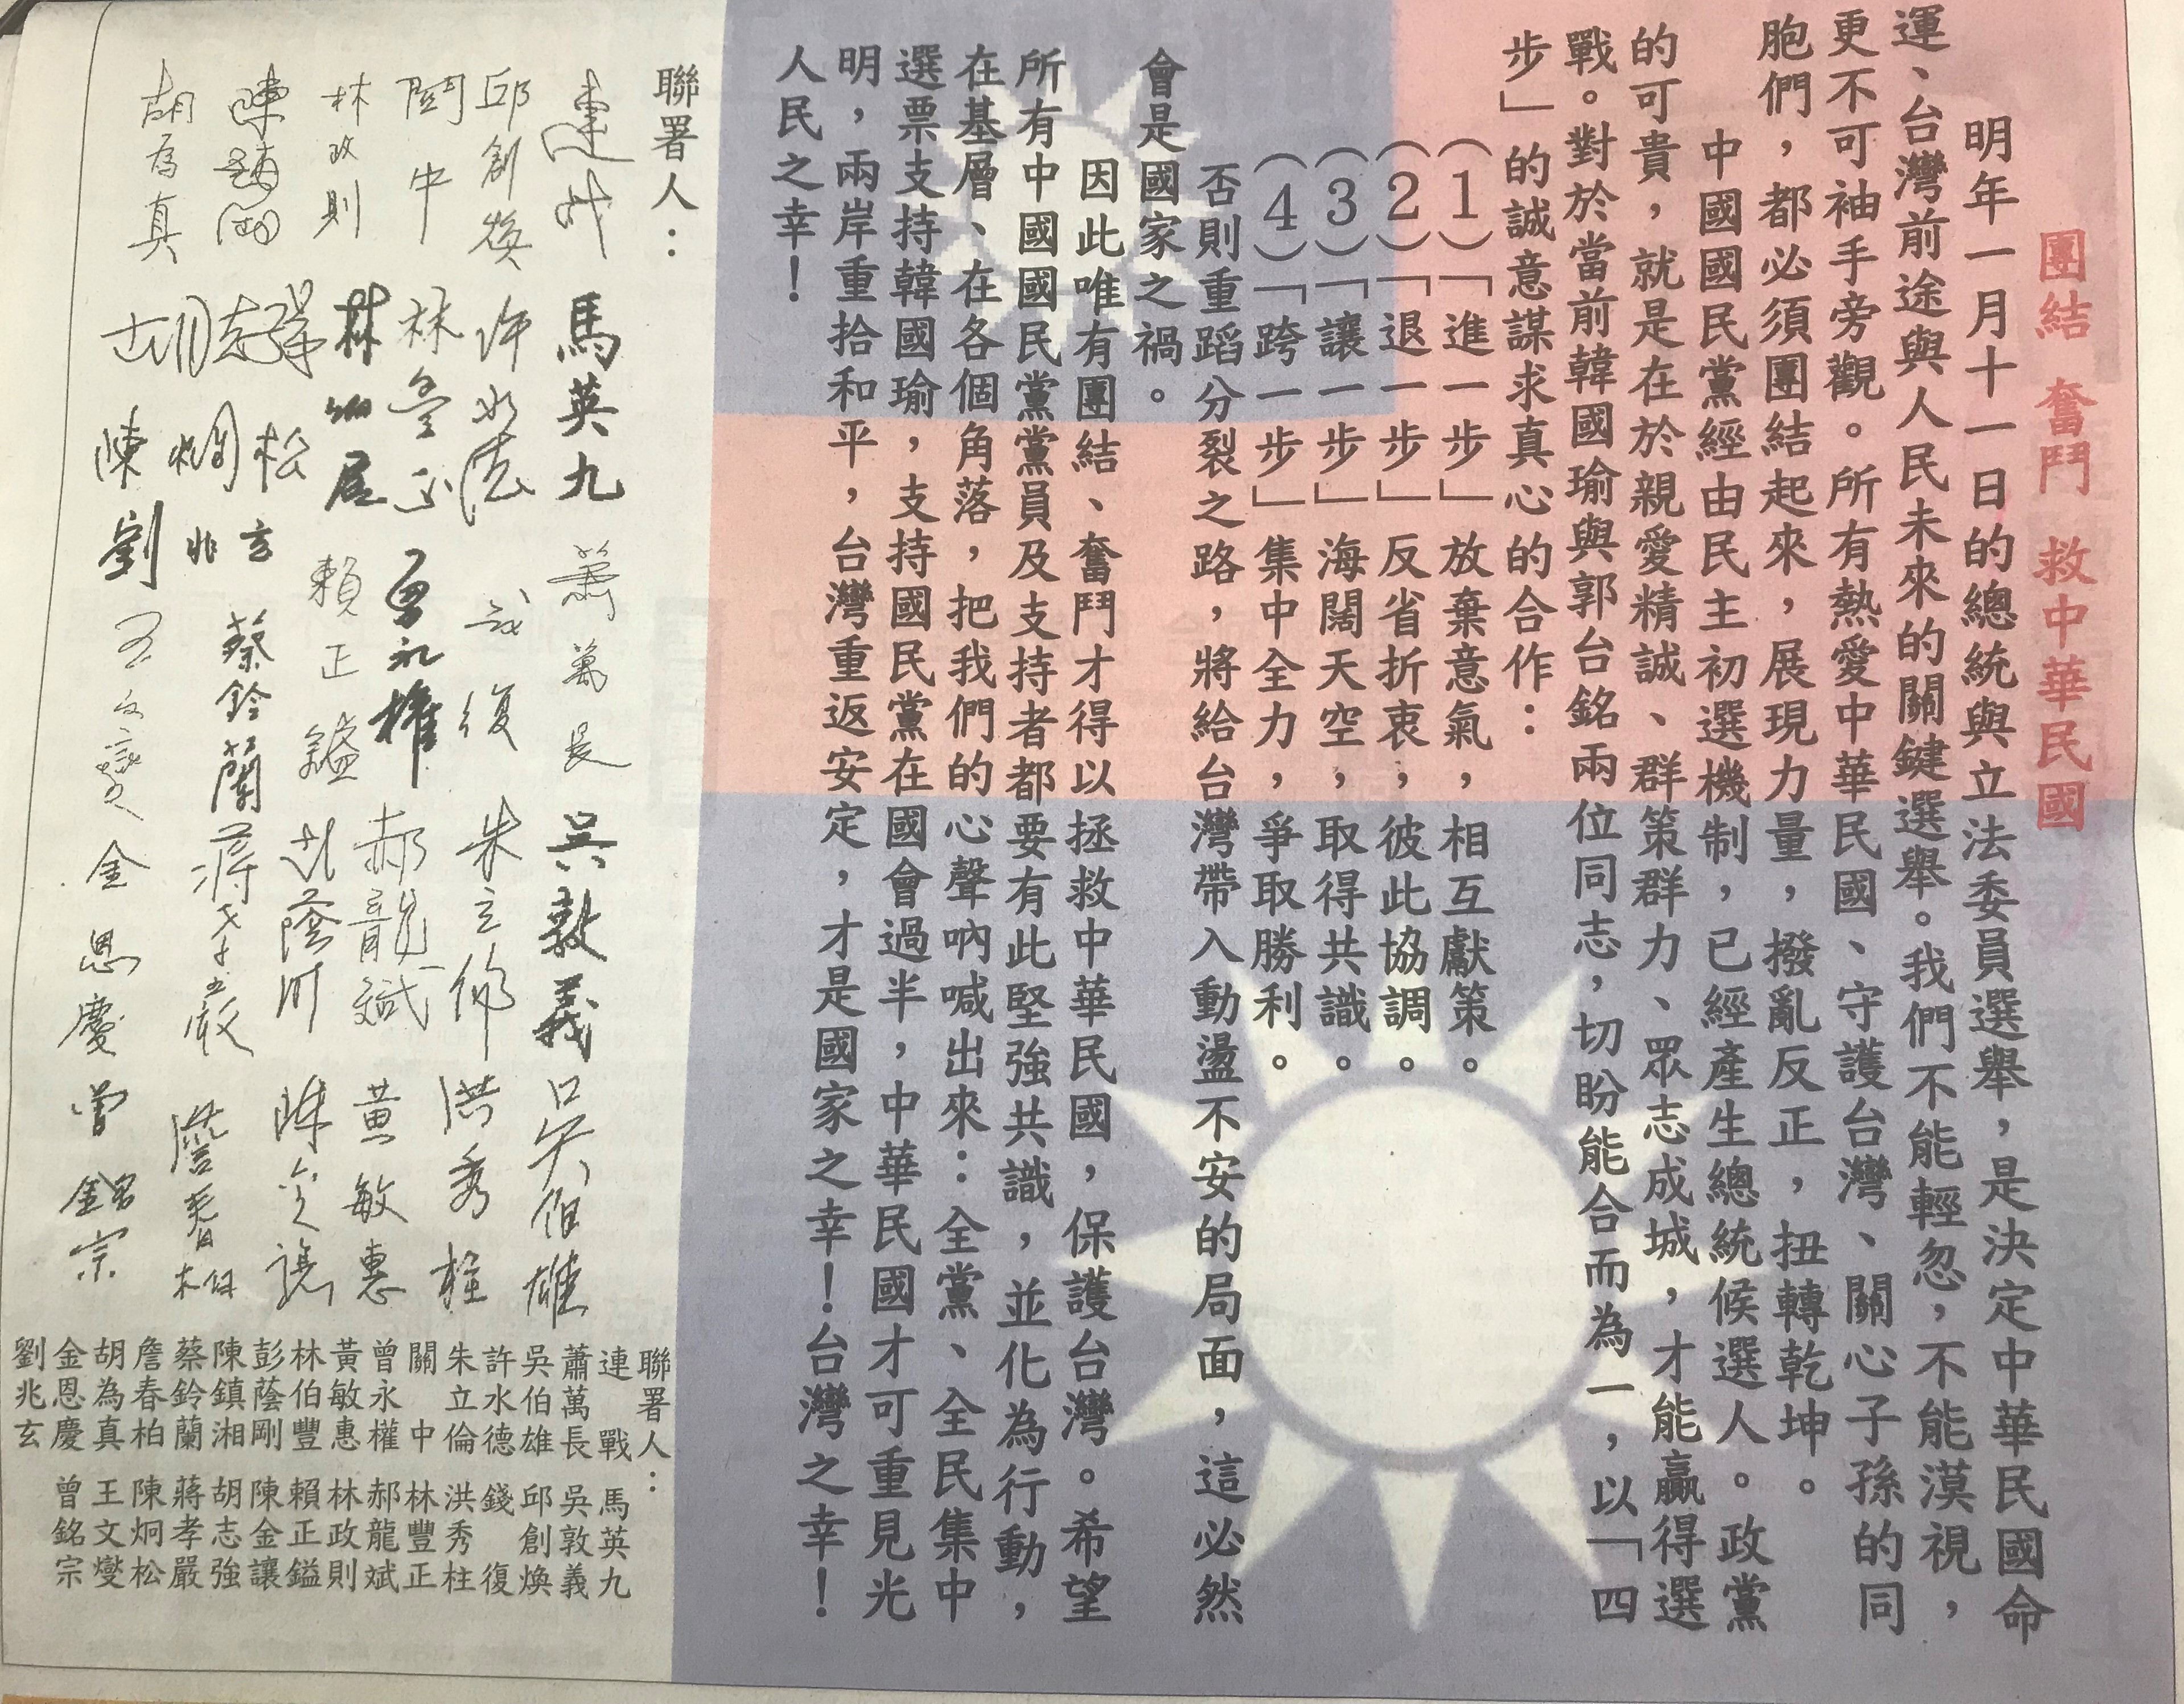 團結 奮鬥 救中華民國
明年一月十一日的總統與立法委員選舉，是決定中華民國命
運、台灣前途與人民未來的關鍵選舉。我們不能輕忽，不能漠視，
更不可袖手旁觀。所有熱愛中華民國、守護台灣、關心子孫的同
胞們，都必須團結起來，展現力量，撥亂反正，扭轉乾坤。
中國國民黨經由民主初選機制，已經產生總統候選人。政黨
的可貴，就是在於親愛精誠、群策群力、眾志成城，才能贏得選
戰。對於當前韓國瑜與郭台銘兩位同志，切盼能合而為一，以「四
步」的誠意謀求真心的合作：
（1）「進一步」放棄意氣，相互獻策。
（2）「退一步」反省折衷，彼此協調。
（3）「讓一步」海闊天空，取得共識。
（4）「跨一步」集中全力，爭取勝利。
否則重蹈分裂之路，將給台灣帶入動盪不安的局面，這必然
會是國家之禍。
因此唯有團結、奮鬥才得以拯救中華民國，保護台灣。希望
所有中國國民黨黨員及支持者都要有此堅強共識，並化為行動，
在基層、在各個角落，把我們的心聲吶喊出來：全黨、全民集中
選票支持韓國瑜，支持國民黨在國會過半，中華民國才可重見光
明，兩岸重拾和平，台灣重返安定，才是國家之幸！台灣之幸！
人民之幸！
聯署人：
連戰 馬英九 蕭萬長 吳敦義 吳伯雄
邱創煥 許水德 錢復 朱立倫 洪秀柱
關中 林豐正 曾永權 郝龍斌 黃敏惠
林政則 林伯豐 賴正鎰 彭蔭剛 陳金讓
陳鎮湘 胡志強 陳炯松 劉兆玄 蔡鈴蘭 蔣孝嚴 詹春柏
胡為真 王文燮 金恩慶 曾銘宗
聯署人：
連戰 馬英九
蕭萬長 吳敦義
吳伯雄 邱創煥
許水德 錢復
朱立倫 洪秀柱
關中 林豐正
曾永權 郝龍斌
黃敏惠 林政則
林伯豐 賴正鎰
彭蔭剛 陳金讓
陳鎮湘 胡志強
蔡鈴蘭 蔣孝嚴
詹春柏 陳炯松
胡為真 王文燮
金恩慶 曾銘宗
劉兆玄